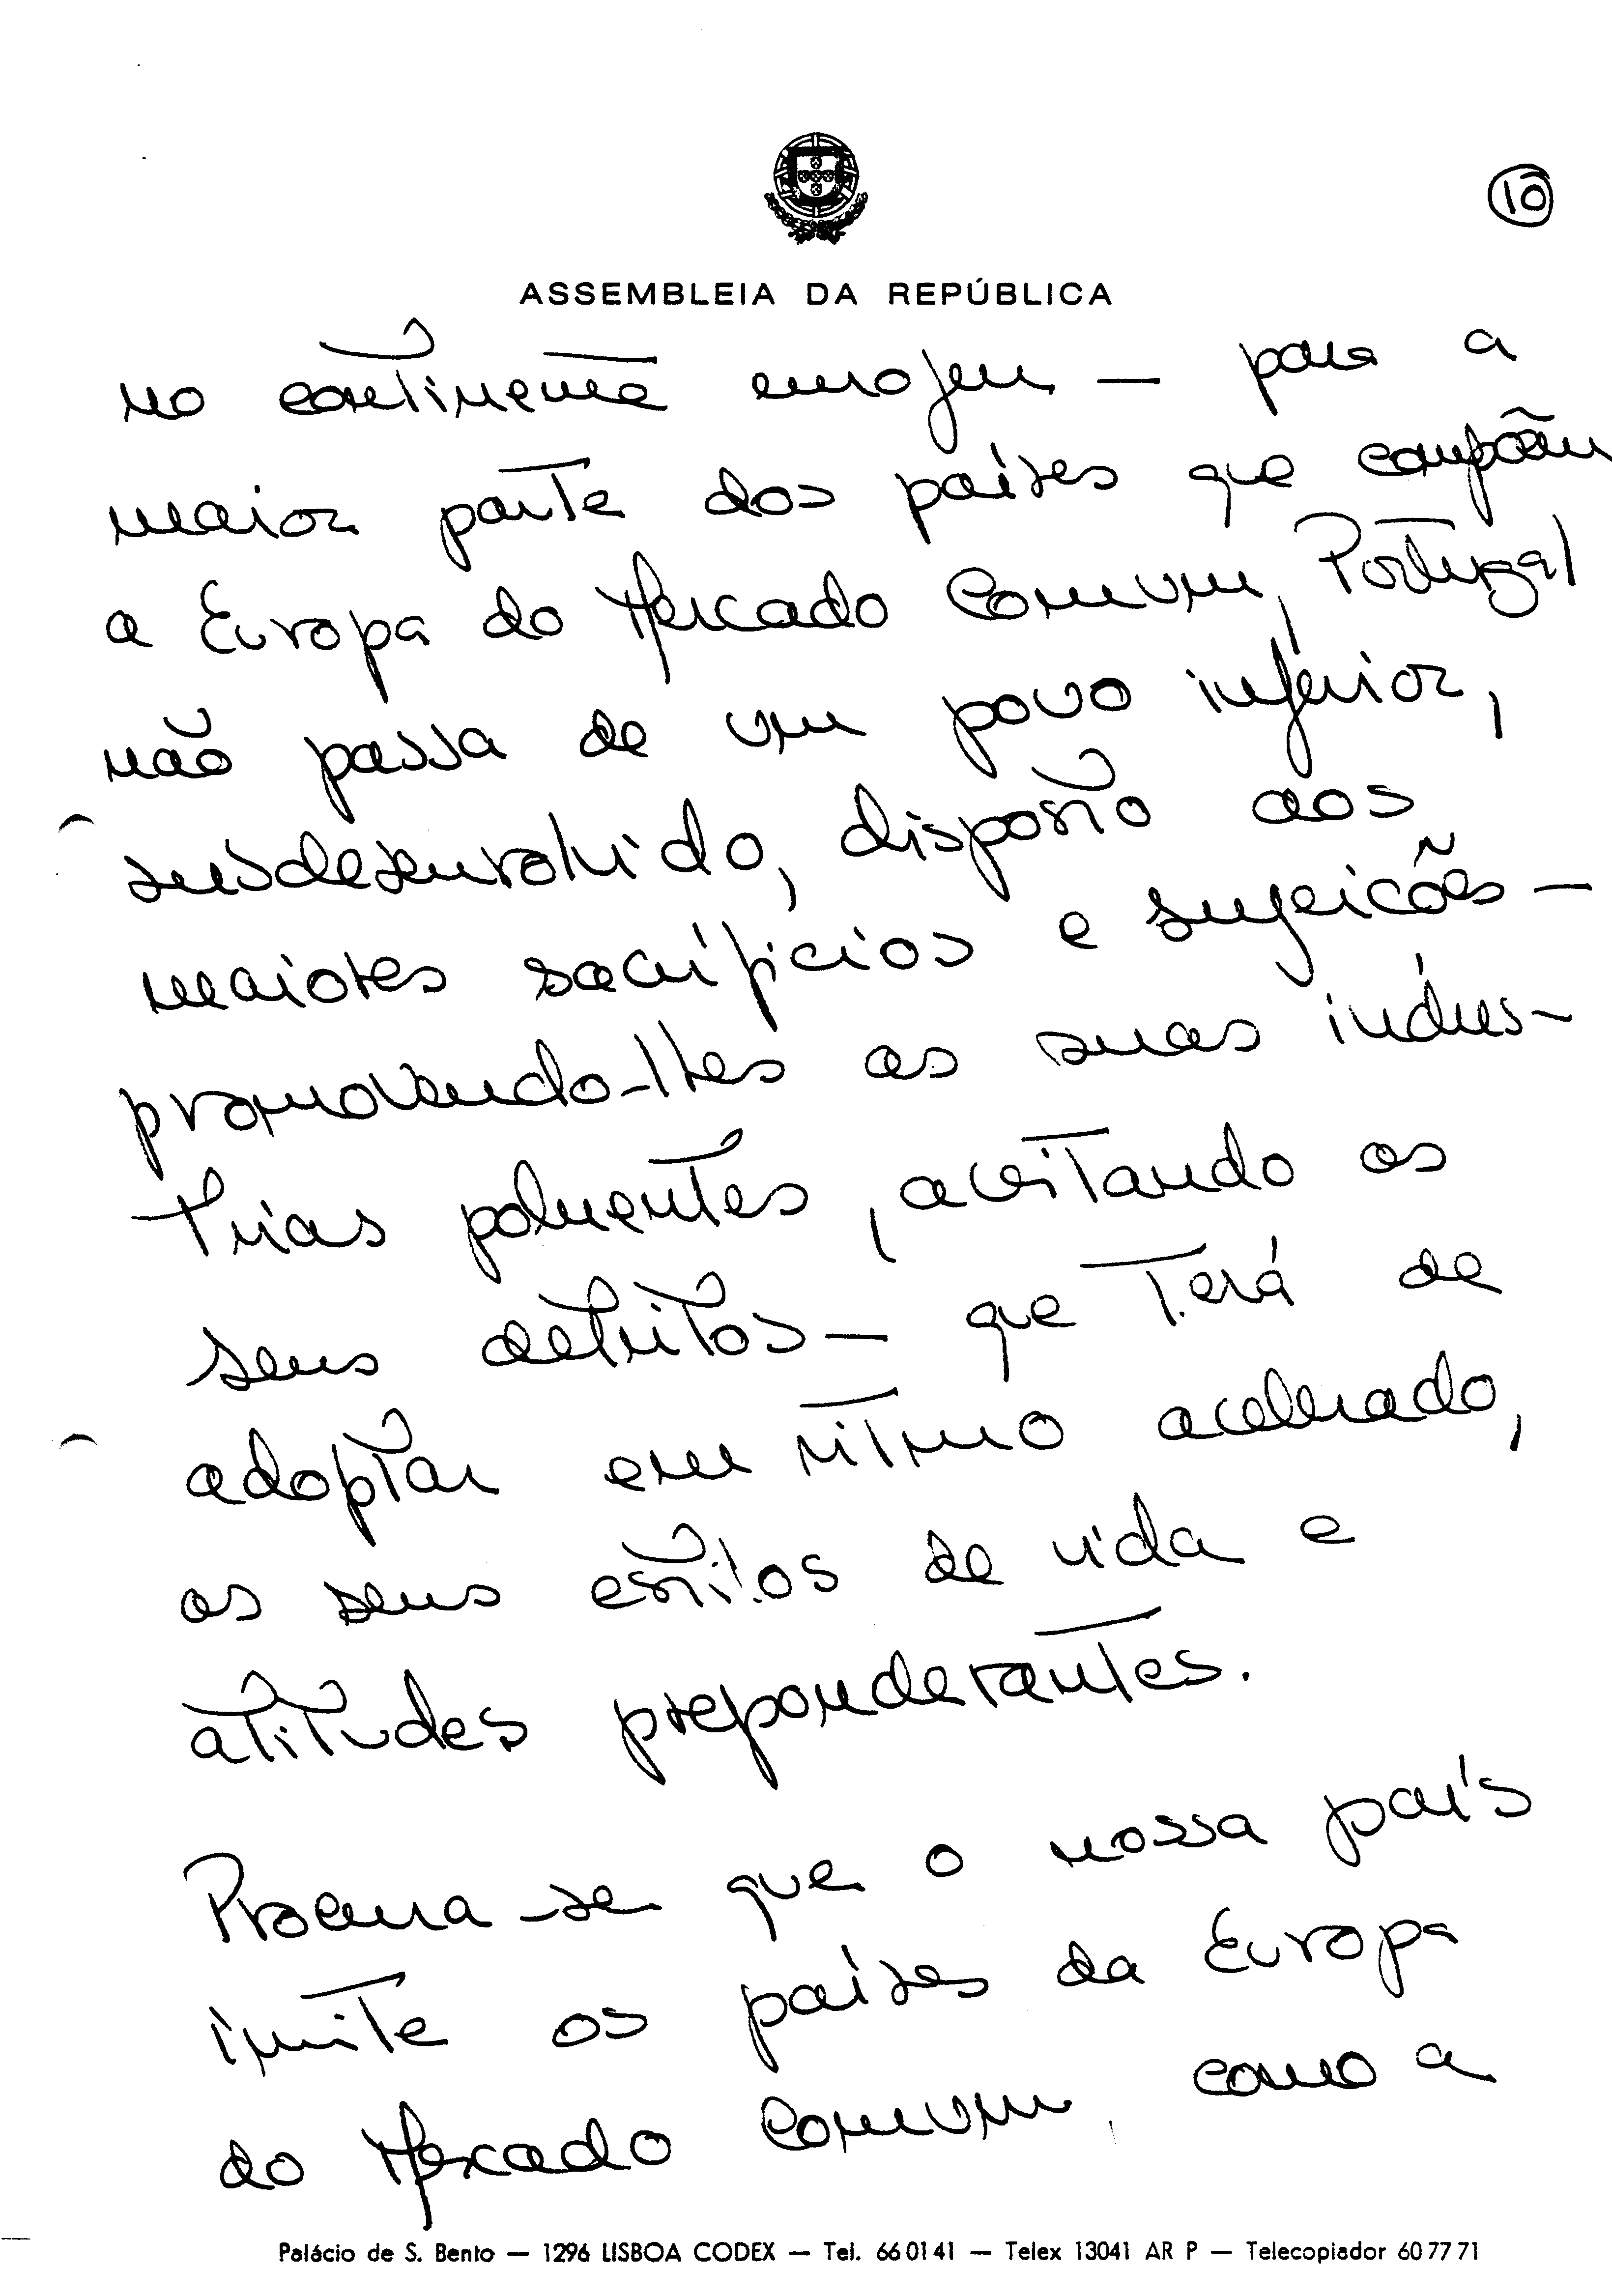 10
ASSEMBLEIA DA REPÚBLICA
no continente europeu — para a
maior parte dos países que compõem
a Europa do Mercado Comum, Portugal
não passa de um povo inferior,
subdesenvolvido, disposto aos
maiores sacrifícios e sujeições —
promovendo-lhes as suas indus-
trias poluentes, aceitando os
seus detritos — que terá de
adoptar em ritmo acelerado,
os seus estilos de vida e
atitudes preponderantes.
Procura-se que o nossa país
imite os países da Europa
do Mercado Comum, como a
Palácio de S. Bento — 1296 LISBOA CODEX — Tel. 66 01 41 — Telex 13041 AR P — Telecopiador 60 77 71